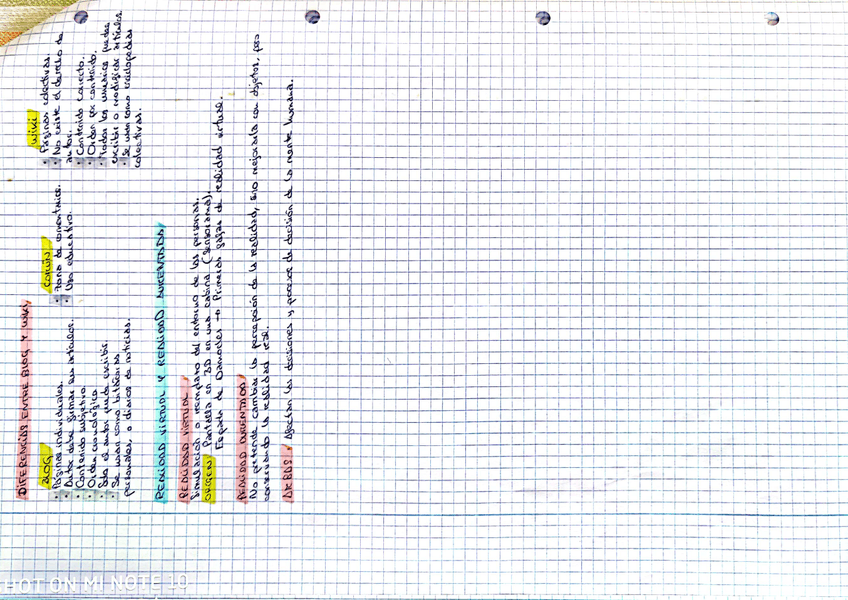 DIFERENCIAS ENTRE BLOG Y WIKI
BLOG
· Páginas individuales.
· Autor debe firmar sus artículos.
· Contenido subjetivo
· Orden cronológico
· Solo el autor puede escribir.
· Se usan como bitácoras
personales, o diarios de noticias.
COMÚN
· Zona de comentarios.
· Uso educativo.
WIKI
· Páginas colectivas.
· No existe el derecho de
autor.
· Contenido correcto.
· Orden por contenido.
· Todos los usuarios puedes
escribir o modificar artículos.
· Se usan como enciclopedias
colectivas.
REALIDAD VIRTUAL Y REALIDAD AUMENTADA
REALIDAD VIRTUAL
Simulación o reemplazo del entorno de las personas.
ORIGEN Pantalla en 3D en una cabina (Sensorama).
Espada de Damocles → Primeras gafas de realidad virtual.
REALIDAD AUMENTADA
No pretende cambiar la percepción de la realidad, sino mejorarla con objetos, pero
conservando la realidad real.
Afectan las decisiones y proceso de decisión de la mente humana.
SHOT ON MI NOTE 10